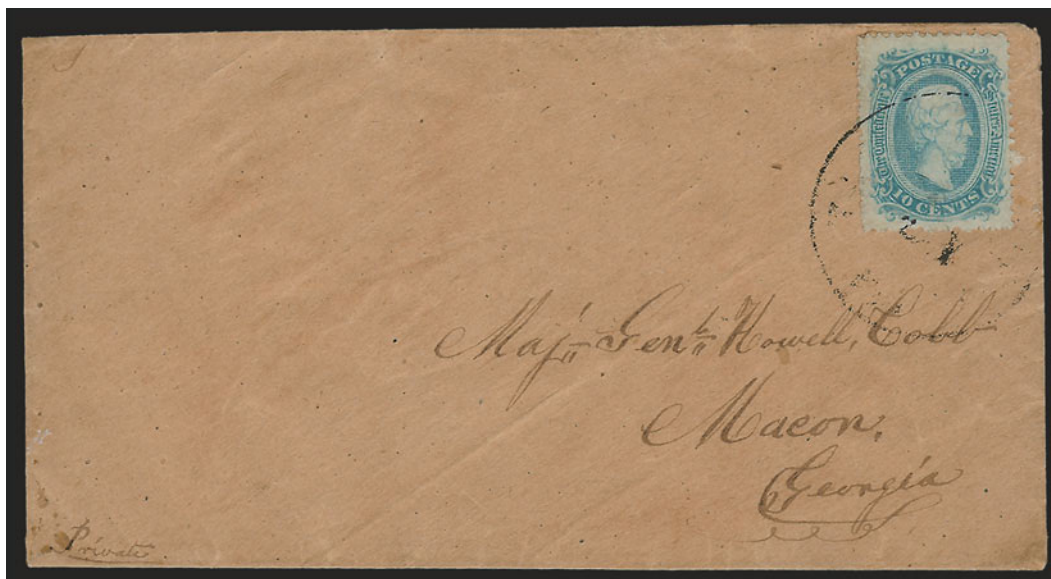 POSTAGE
The Confederate States of America
10 CENTS
Maj" Genl" Howell, Cobb
Macon,
Georgia
Private